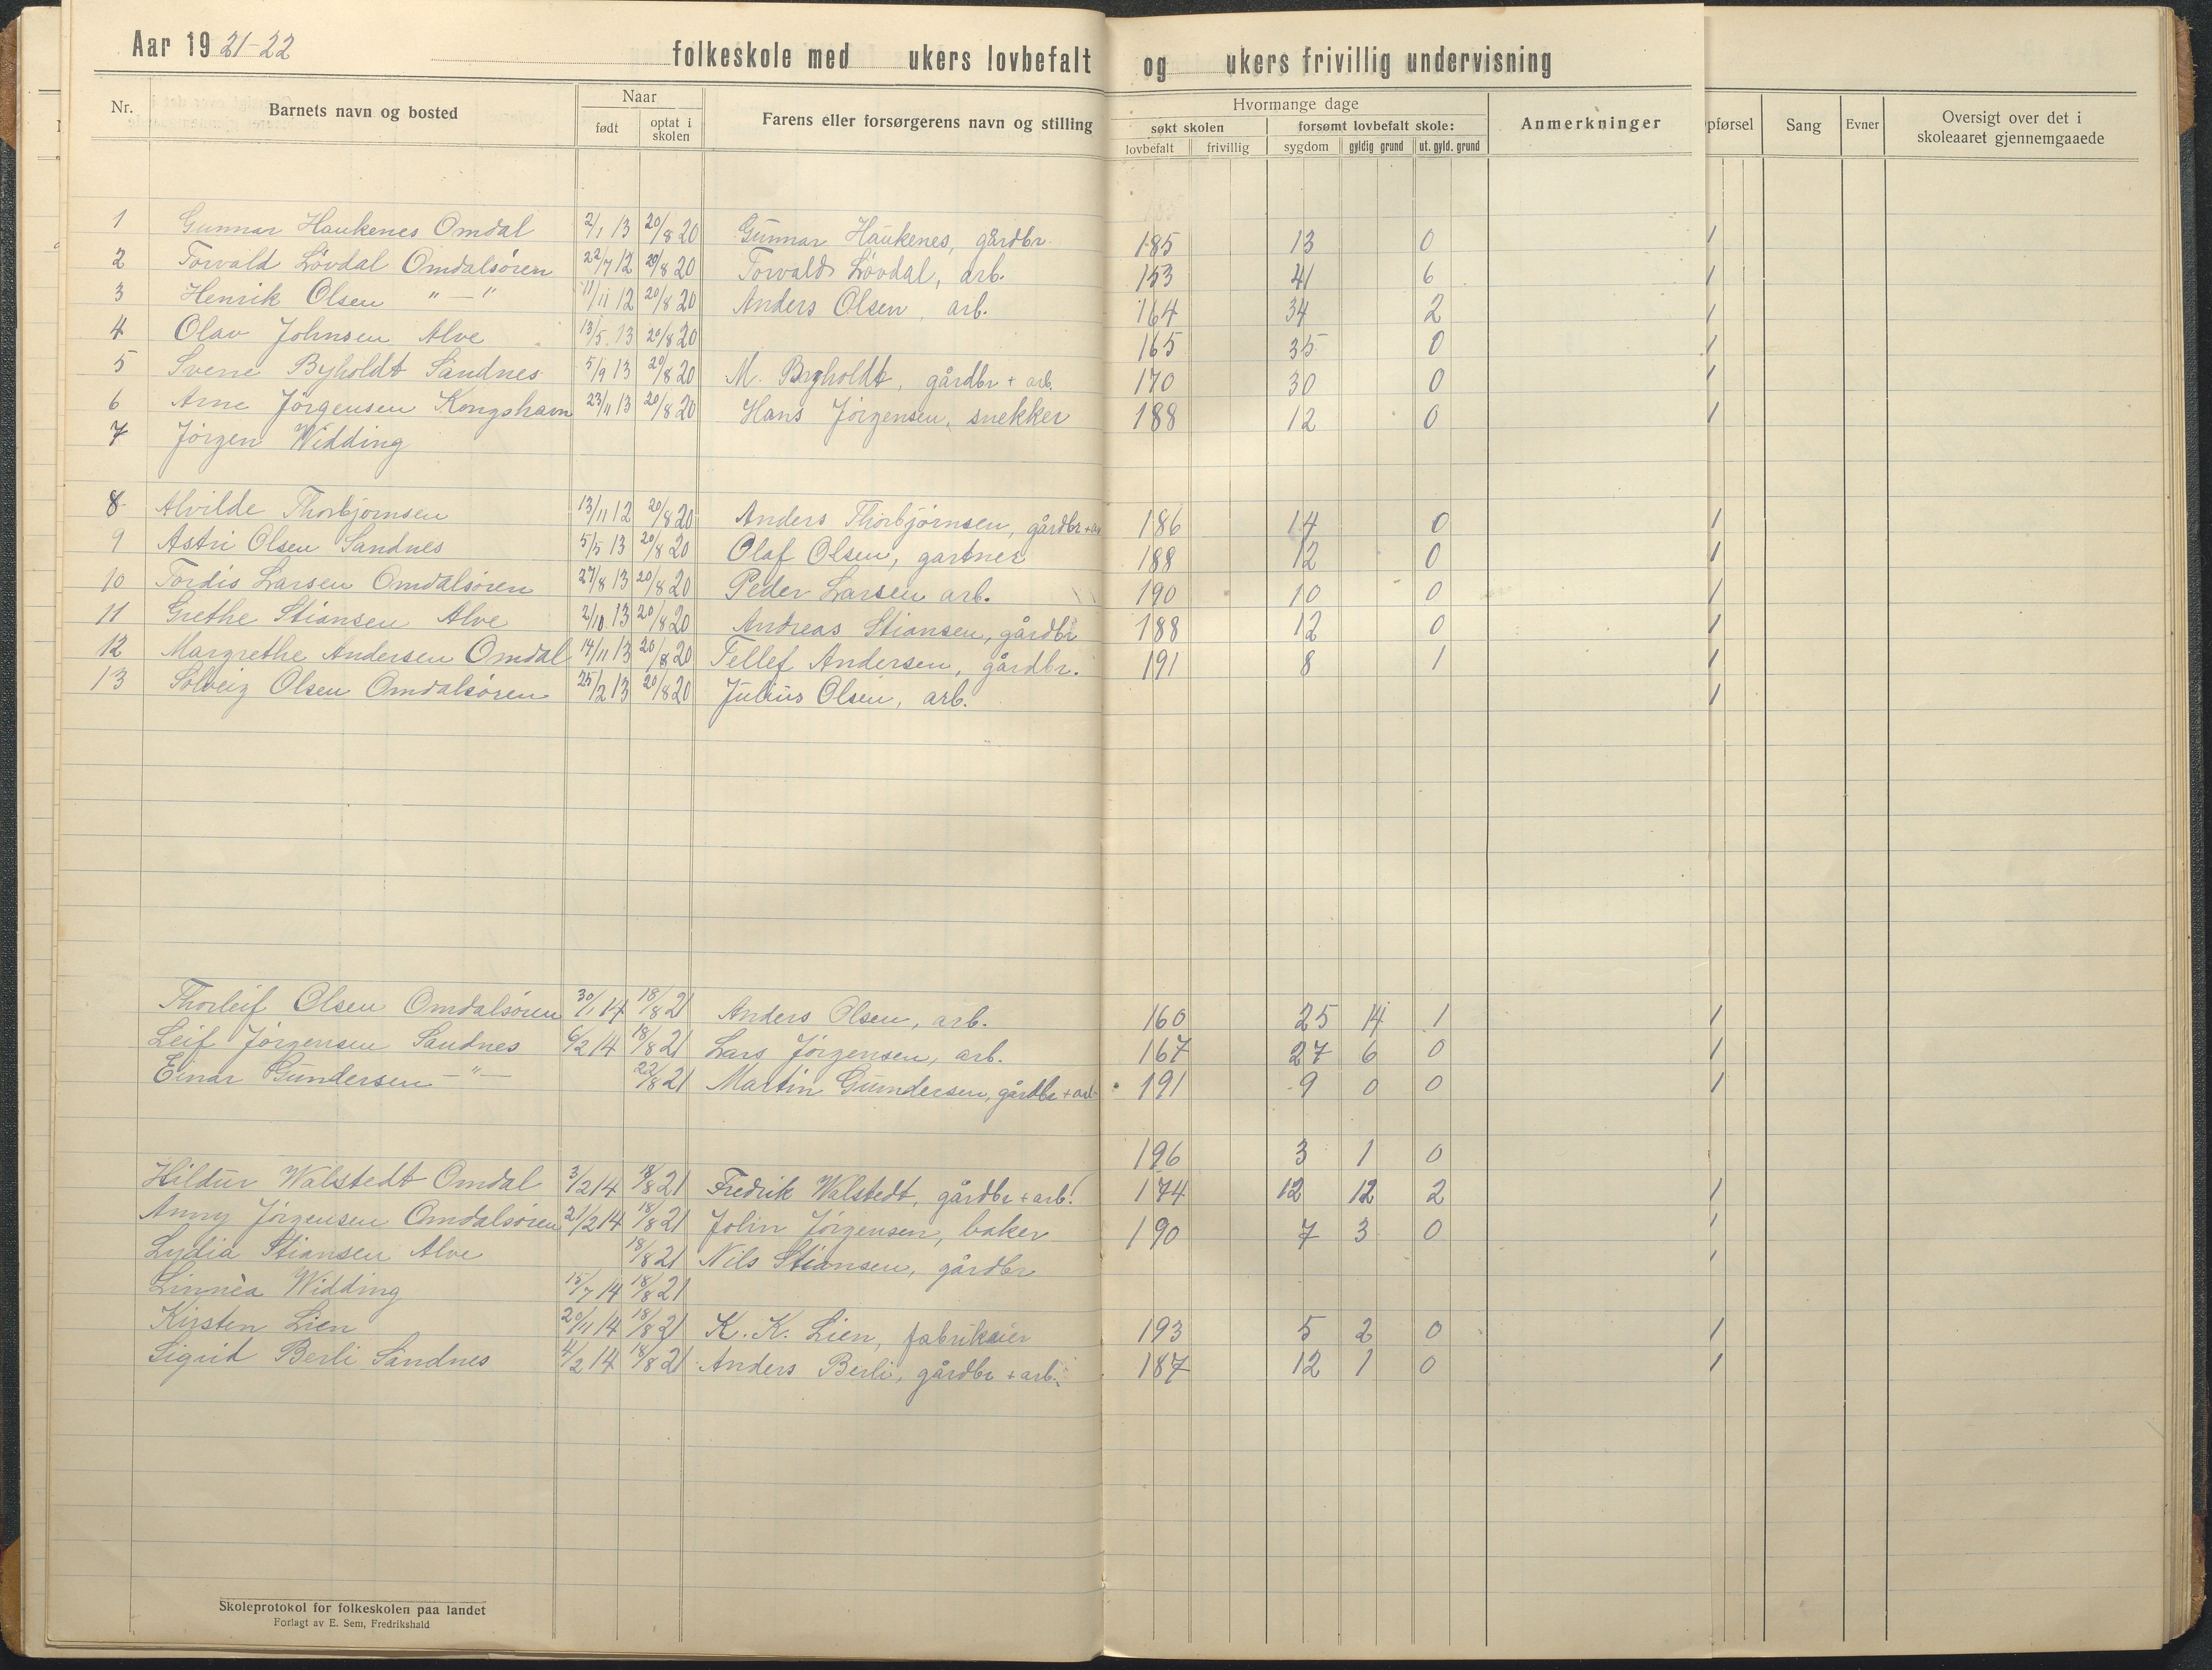 Aar 1921-22 folkeskole med ukers lovbefalt og ukers frivillig undervisning
Nr. Barnets navn og bosted Naar født optat i skolen Farens eller forsørgerens navn og stilling Hvormange dage søkt skolen lovbefalt frivillig forsømt lovbefalt skole: sygdom gyldig grund ut. gyld. grund Anmerkninger pførsel Sang Evner Oversigt over det i skoleaaret gjennemgaaede
1 Gunnar Haukenes Omdal 2/1 13 20/8 20 Gunnar Haukenes, gårdbr. 185 13 0 1
2 Torvald Lövdal Omdalsören 22/7 12 20/8 20 Torvald Lövdal, arb. 153 41 6 1
3 Henrik Olsen "—" 11/11 12 20/8 20 Anders Olsen, arb. 164 34 2 1
4 Olav Johnsen Alve 13/5 13 20/8 20 165 35 0 1
5 Sverre Byholdt Sandnes 5/9 13 20/8 20 M. Byholdt, gårdbr + arb. 170 30 0 1
6 Arne Jörgensen Kongshavn 23/11 13 20/8 20 Hans Jörgensen, snekker 188 12 0 1
7 Jörgen Widding
8 Alvilde Thorbjörnsen 13/11 12 20/8 20 Anders Thorbjörnsen, gårdbr + ar 186 14 0 1
9 Astri Olsen Sandnes 5/5 13 20/8 20 Olaf Olsen, gartner 188 12 0 1
10 Tordis Larsen Omdalsören 27/8 13 20/8 20 Peder Larsen arb. 190 10 0 1
11 Grethe Stiansen Alve 2/10 13 20/8 20 Andreas Stiansen, gårdbr 188 12 0 1
12 Margrethe Andersen Omdal 14/11 13 20/8 20 Tellef Andersen, gårdbr. 191 8 1 1
13 Solveig Olsen Omdalsören 25/2 13 20/8 20 Julius Olsen, arb. 1
Thorleif Olsen Omdalsören 30/1 14 18/8 21 Anders Olsen, arb. 160 25 14 1 1
Leif Jörgensen Sandnes 6/2 14 18/8 21 Lars Jörgensen, arb. 167 27 6 0 1
Einar Gundersen —"— 22/8 21 Martin Gundersen, gårdbr + arb 191 9 0 0 1
196 3 1 0
Hildur Walstedt Omdal 3/2 14 18/8 21 Fredrik Walstedt, gårdbr + arb. 174 12 12 2 1
Anny Jörgensen Omdalsören 21/2 14 18/8 21 John Jörgensen, baker 190 7 3 0 1
Lydia Stiansen Alve 18/8 21 Nils Stiansen, gårdbr 1
Linnèa Widding 15/7 14 18/8 21
Kirsten Lien 20/11 14 18/8 21 K. K. Lien, fabrikeier 193 5 2 0 1
Sigrid Berli Sandnes 4/2 14 18/8 21 Anders Berli, gårdbr + arb. 187 12 1 0 1
Skoleprotokol for folkeskolen paa landet
Forlagt av E. Sem, Fredrikshald